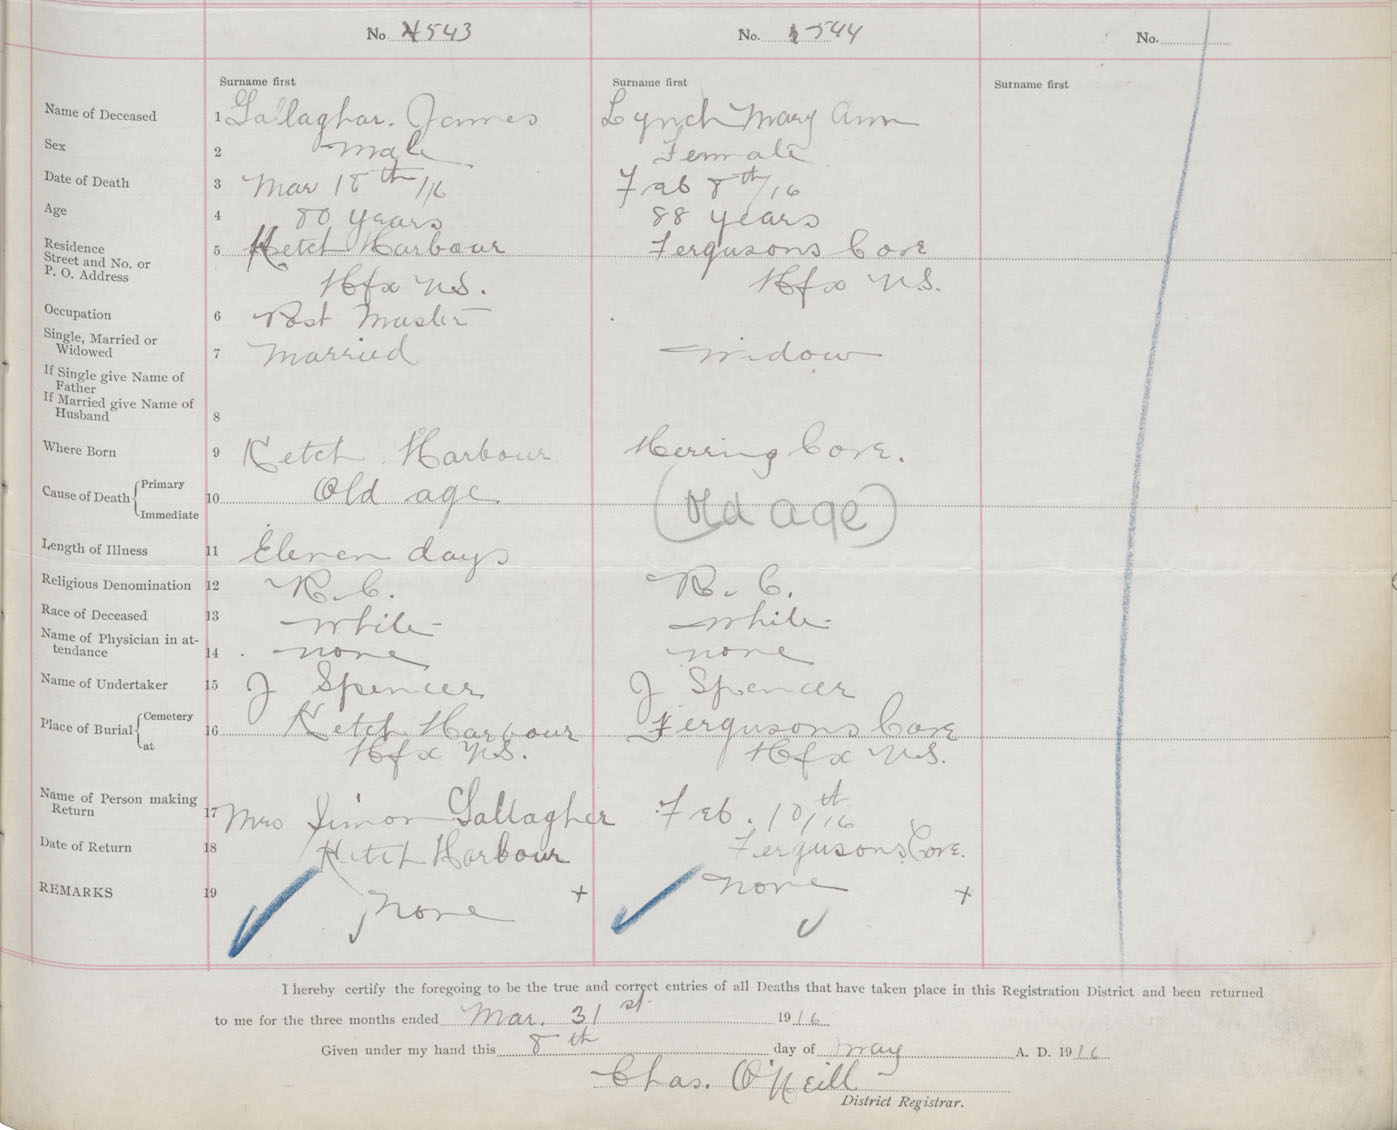 No. 4543
No. 1544
No.
Surname first
Surname first
Surname first
Name of Deceased 1 Gallaghar. James
Lynch Mary Ann
Sex 2 male
Female
Date of Death 3 Mar 18th/16
Feb 8th/16
Age 4 80 years
88 years
Residence
Street and No. or
P. O. Address
5 Ketch Harbour
Hfx N.S.
Fergusons Cove
Hfx N.S.
Occupation 6 Post Master
Single, Married or
Widowed
7 Married
Widow
If Single give Name of
Father
If Married give Name of
Husband
8
Where Born 9 Ketch Harbour
Herring Cove.
Cause of Death Primary
Immediate
10 Old age
(old age)
Length of Illness 11 Eleven days
Religious Denomination 12 R. C.
R. C.
Race of Deceased 13 White
White
Name of Physician in at-
tendance
14 none
none
Name of Undertaker 15 J Spencer
J Spencer
Place of Burial Cemetery
at
16 Ketch Harbour
Hfx N.S.
Fergusons Cove
Hfx N.S.
Name of Person making
Return
17 Mrs Simon Gallagher
Feb. 10th/16
Date of Return 18 Ketch Harbour
Fergusons Cove.
REMARKS 19 None +
none +
I hereby certify the foregoing to be the true and correct entries of all Deaths that have taken place in this Registration District and been returned
to me for the three months ended Mar. 31st 1916
Given under my hand this 8th day of may A. D. 1916
Chas. O'Neill
District Registrar.